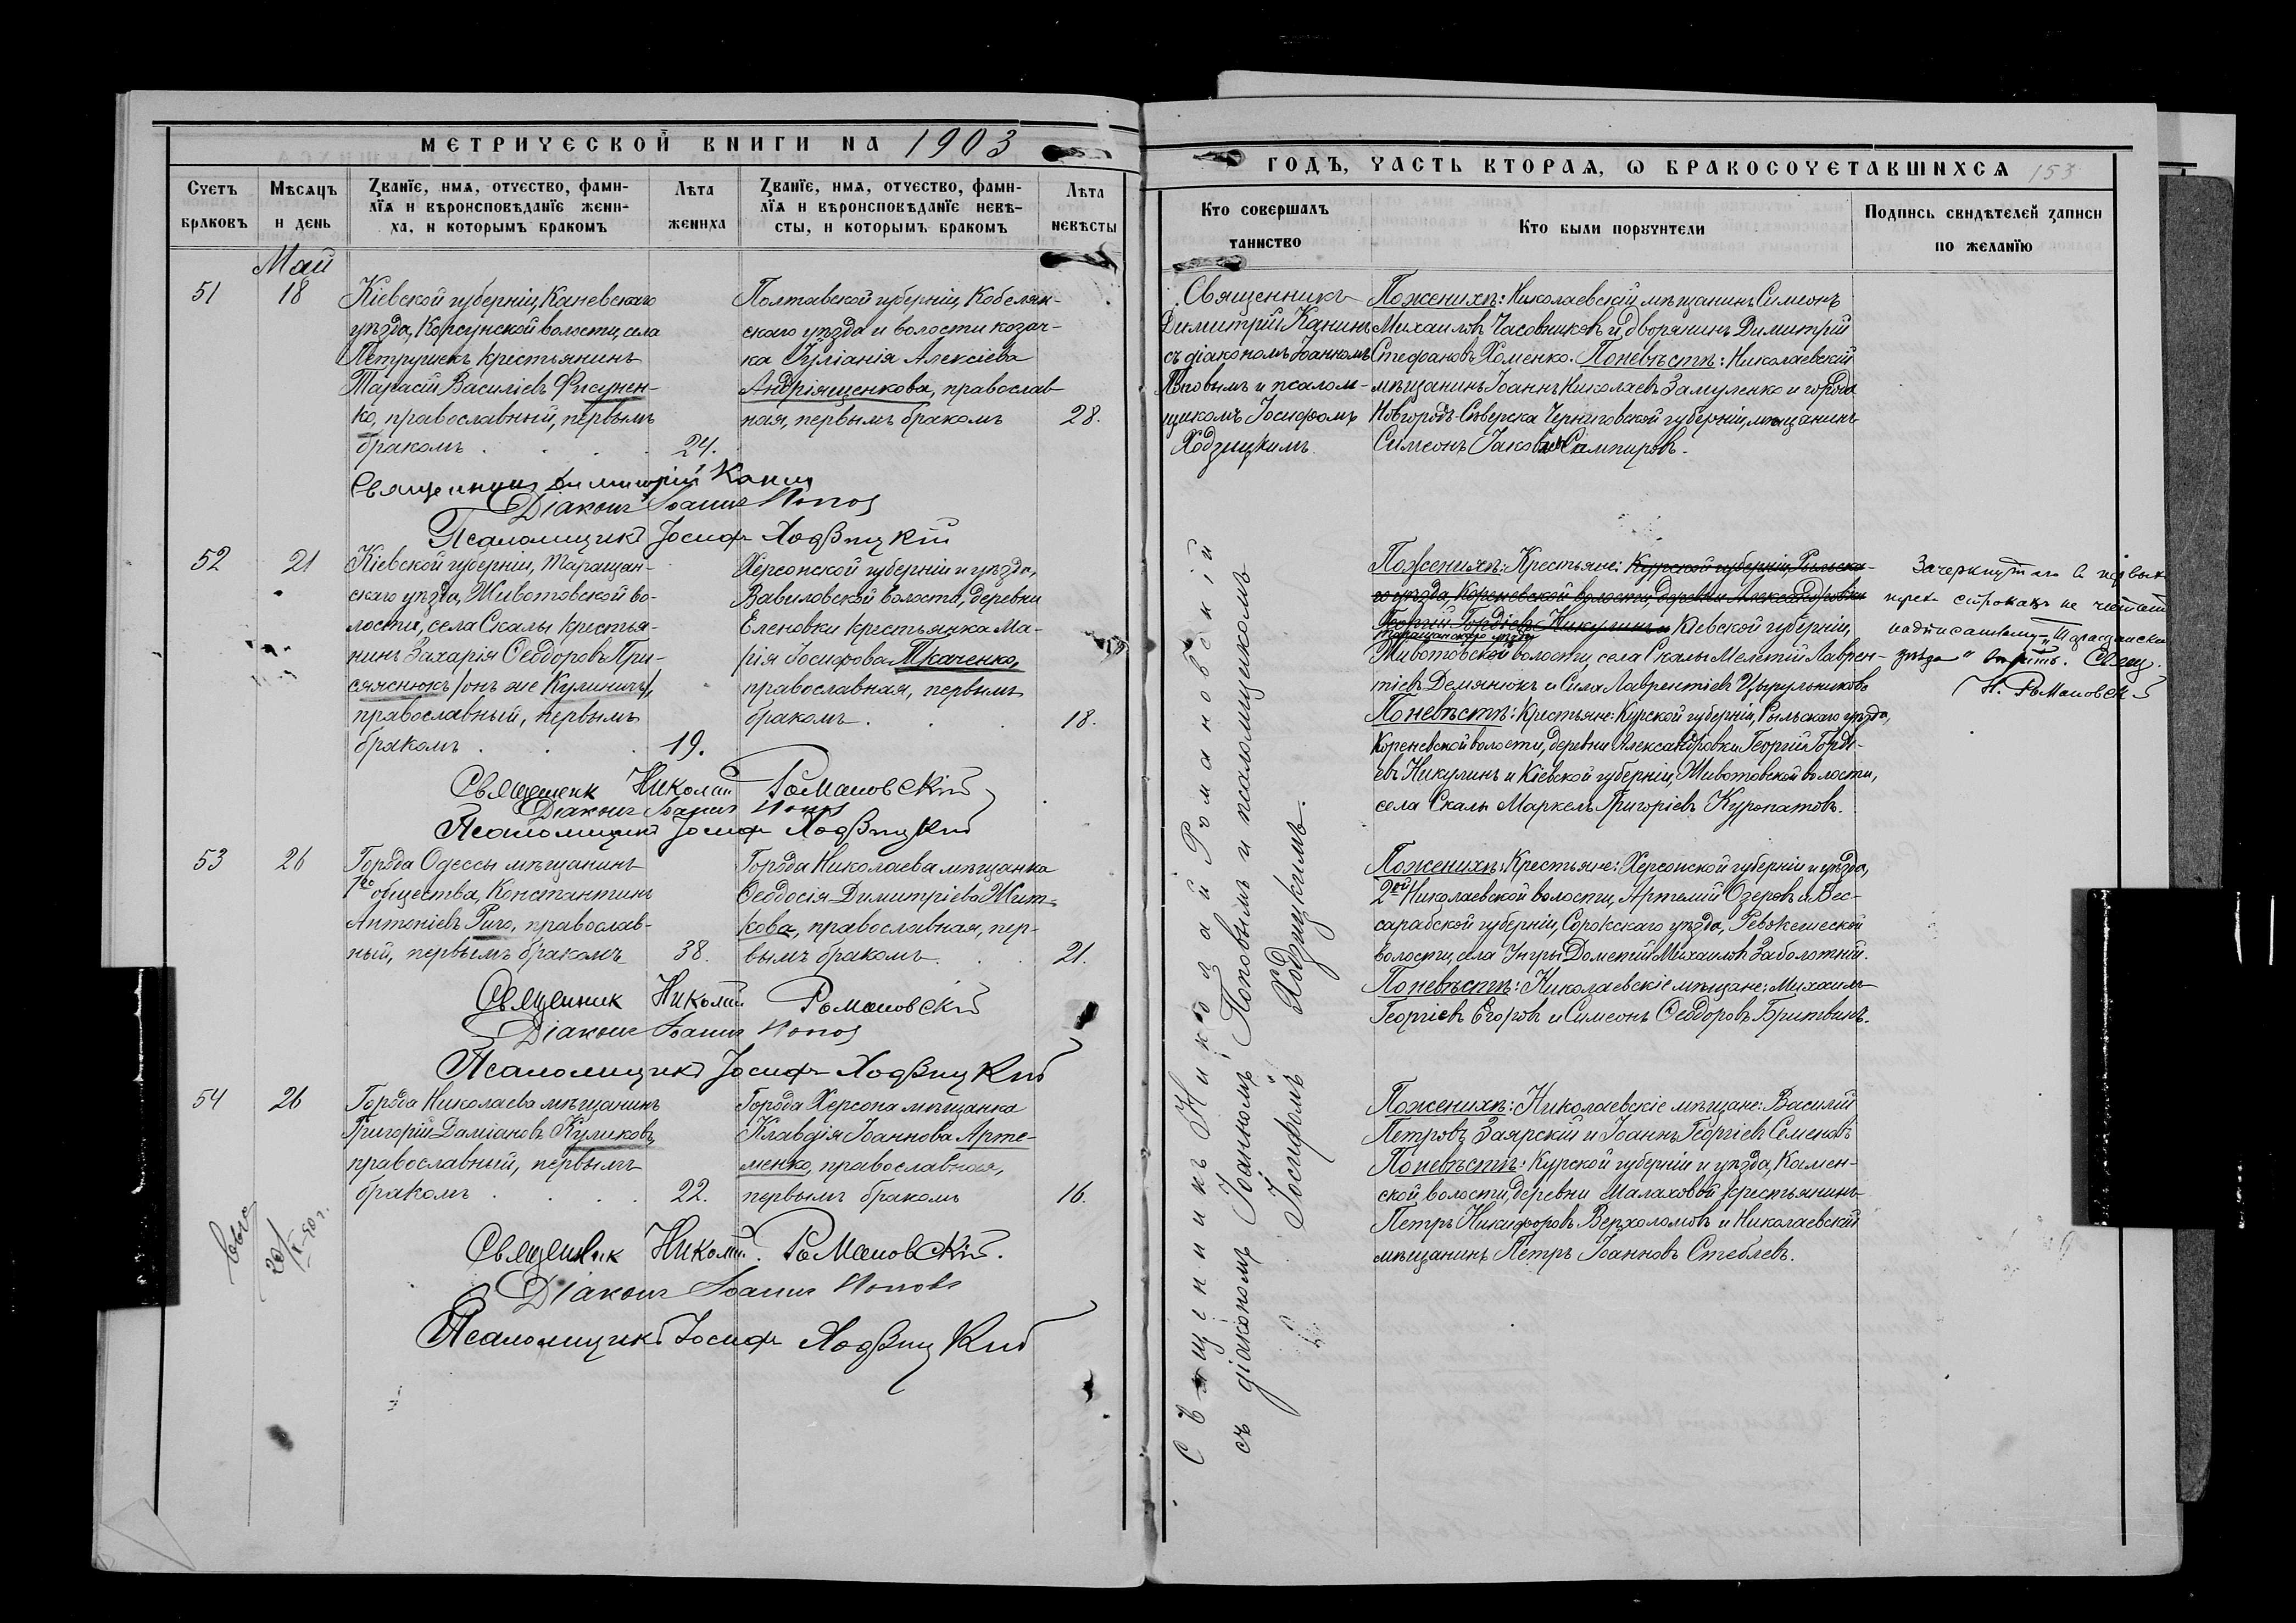 МЕТРИЧЕСКОЙ КНИГИ НА 1903
Счетъ браковъ
Мѣсяцъ и день
Званіе, имя, отчество, фами-
лія и вѣроисповѣданіе жени-
ха, и которымъ бракомъ
Лѣта жениха
Званіе, имя, отчество, фами-
лія и вѣроисповѣданіе невѣ-
сты, и которымъ бракомъ
Лѣта невѣсты
Май
51
18
Кіевской губерніи, Каневскаго
уѣзда, Корсунской волости, села
Петрушекъ крестьянинъ
Тарасій Василіевъ Фисунен-
ко, православный, первымъ
бракомъ
24.
Полтавской губерніи, Кобеляк-
скаго уѣзда и волости козач-
ка Іуліанія Алексіева
Андріященкова, православ-
ная, первымъ бракомъ
28.
Священникъ Димитрій Канинъ
Діаконъ Іоаннъ Поповъ
Псаломщикъ Іосифъ Ходзицкій
52
21
Кіевской губерніи, Таращан-
скаго уѣзда, Животовской во-
лости, села Скалы крестья-
нинъ Захарія Ѳеодоровъ При-
сяжнюкъ /онъ же Кулиничъ/,
православный, первымъ
бракомъ
19.
Херсонской губерніи и уѣзда,
Вавиловской волости, деревни
Еленовки крестьянка Ма-
рія Іосифова Ткаченко,
православная, первымъ
бракомъ
18.
Священник Николай Романовскій
Діаконъ Іоаннъ Поповъ
Псаломщикъ Іосифъ Ходзицкій
53
26
Города Одессы мѣщанинъ
1го общества, Константинъ
Антоніевъ Риго, православ-
ный, первымъ бракомъ
38.
Города Николаева мѣщанка
Ѳеодосія Димитріева Жит-
кова, православная, пер-
вымъ бракомъ
21.
Священник Николай Романовскій
Діаконъ Іоаннъ Поповъ
Псаломщикъ Іосифъ Ходзицкій
54
26
Города Николаева мѣщанинъ
Григорій Даміановъ Куликовъ,
православный, первымъ
бракомъ
22.
Города Херсона мѣщанка
Клавдія Іоаннова Арте-
менко, православная,
первымъ бракомъ
16.
Священник Николай Романовскій.
Діаконъ Іоаннъ Поповъ
Псаломщикъ Іосифъ Ходзицкій
ГОДЪ, ЧАСТЬ ВТОРАЯ, Ѡ БРАКОСОЧЕТАВШИХСЯ 153
Кто совершалъ
таинство
Кто были поручители
Подпись свидѣтелей записи
по желанію
Священникъ
Димитрій Канинъ
съ діакономъ Іоанномъ
Поповымъ и псалом-
щикомъ Іосифомъ
Ходзицкимъ
По женихѣ: Николаевскій мѣщанинъ Симеонъ
Михаиловъ Часовниковъ и дворянинъ Димитрій
Стефановъ Хоменко. По невѣстѣ: Николаевскій
мѣщанинъ Іоаннъ Николаевъ Замуленко и города
Новгородъ-Сѣверска Черниговской губерніи, мѣщанинъ
Симеонъ Іаковлевъ Сампировъ.
Священникъ Николай Романовскій
съ діакономъ Іоанномъ Поповымъ и псаломщикомъ
Іосифомъ Ходзицкимъ.
По женихѣ: Крестьяне: Курской губерніи, Рыльска-
го уѣзда, Кореневской волости, деревни Александровки
Георгій Гордіевъ Никулинъ и Кіевской губерніи,
Таращанскаго уѣзда
Животовской волости, села Скалы Мелетій Лаврен-
тіевъ Демянюкъ и Сила Лаврентіевъ Цырульниковъ
По невѣстѣ: Крестьяне: Курской губерніи, Рыльскаго уѣзда,
Кореневской волости, деревни Александровки Георгій Горді-
евъ Никулинъ и Кіевской губерніи, Животовской волости,
села Скалы Маркелъ Григоріевъ Куропатовъ.
Зачеркнутаго въ первыхъ
трехъ строкахъ не читать
надписанному „Таращанскаго
уѣзда“ вѣрить. Свящ.
Н. Романовскій
По женихѣ: Крестьяне: Херсонской губерніи и уѣзда,
2ой Николаевской волости, Артемий Озеровъ и Бес-
сарабской губерніи, Сорокскаго уѣзда,
волости, села Дометій Михаиловъ Заболотній.
По невѣстѣ: Николаевскіе мѣщане: Михаилъ
Георгіевъ Егоровъ и Симеонъ Ѳеодоровъ Бритвинъ.
По женихѣ: Николаевскіе мѣщане: Василій
Петровъ Заярскій и Іоаннъ Георгіевъ Семеновъ
По невѣстѣ: Курской губерніи и уѣзда, Камен-
ской волости, деревни Малаховой крестьянинъ
Петръ Никифоровъ Верхоломовъ и Николаевскій
мѣщанинъ Петръ Іоанновъ Стеблевъ.